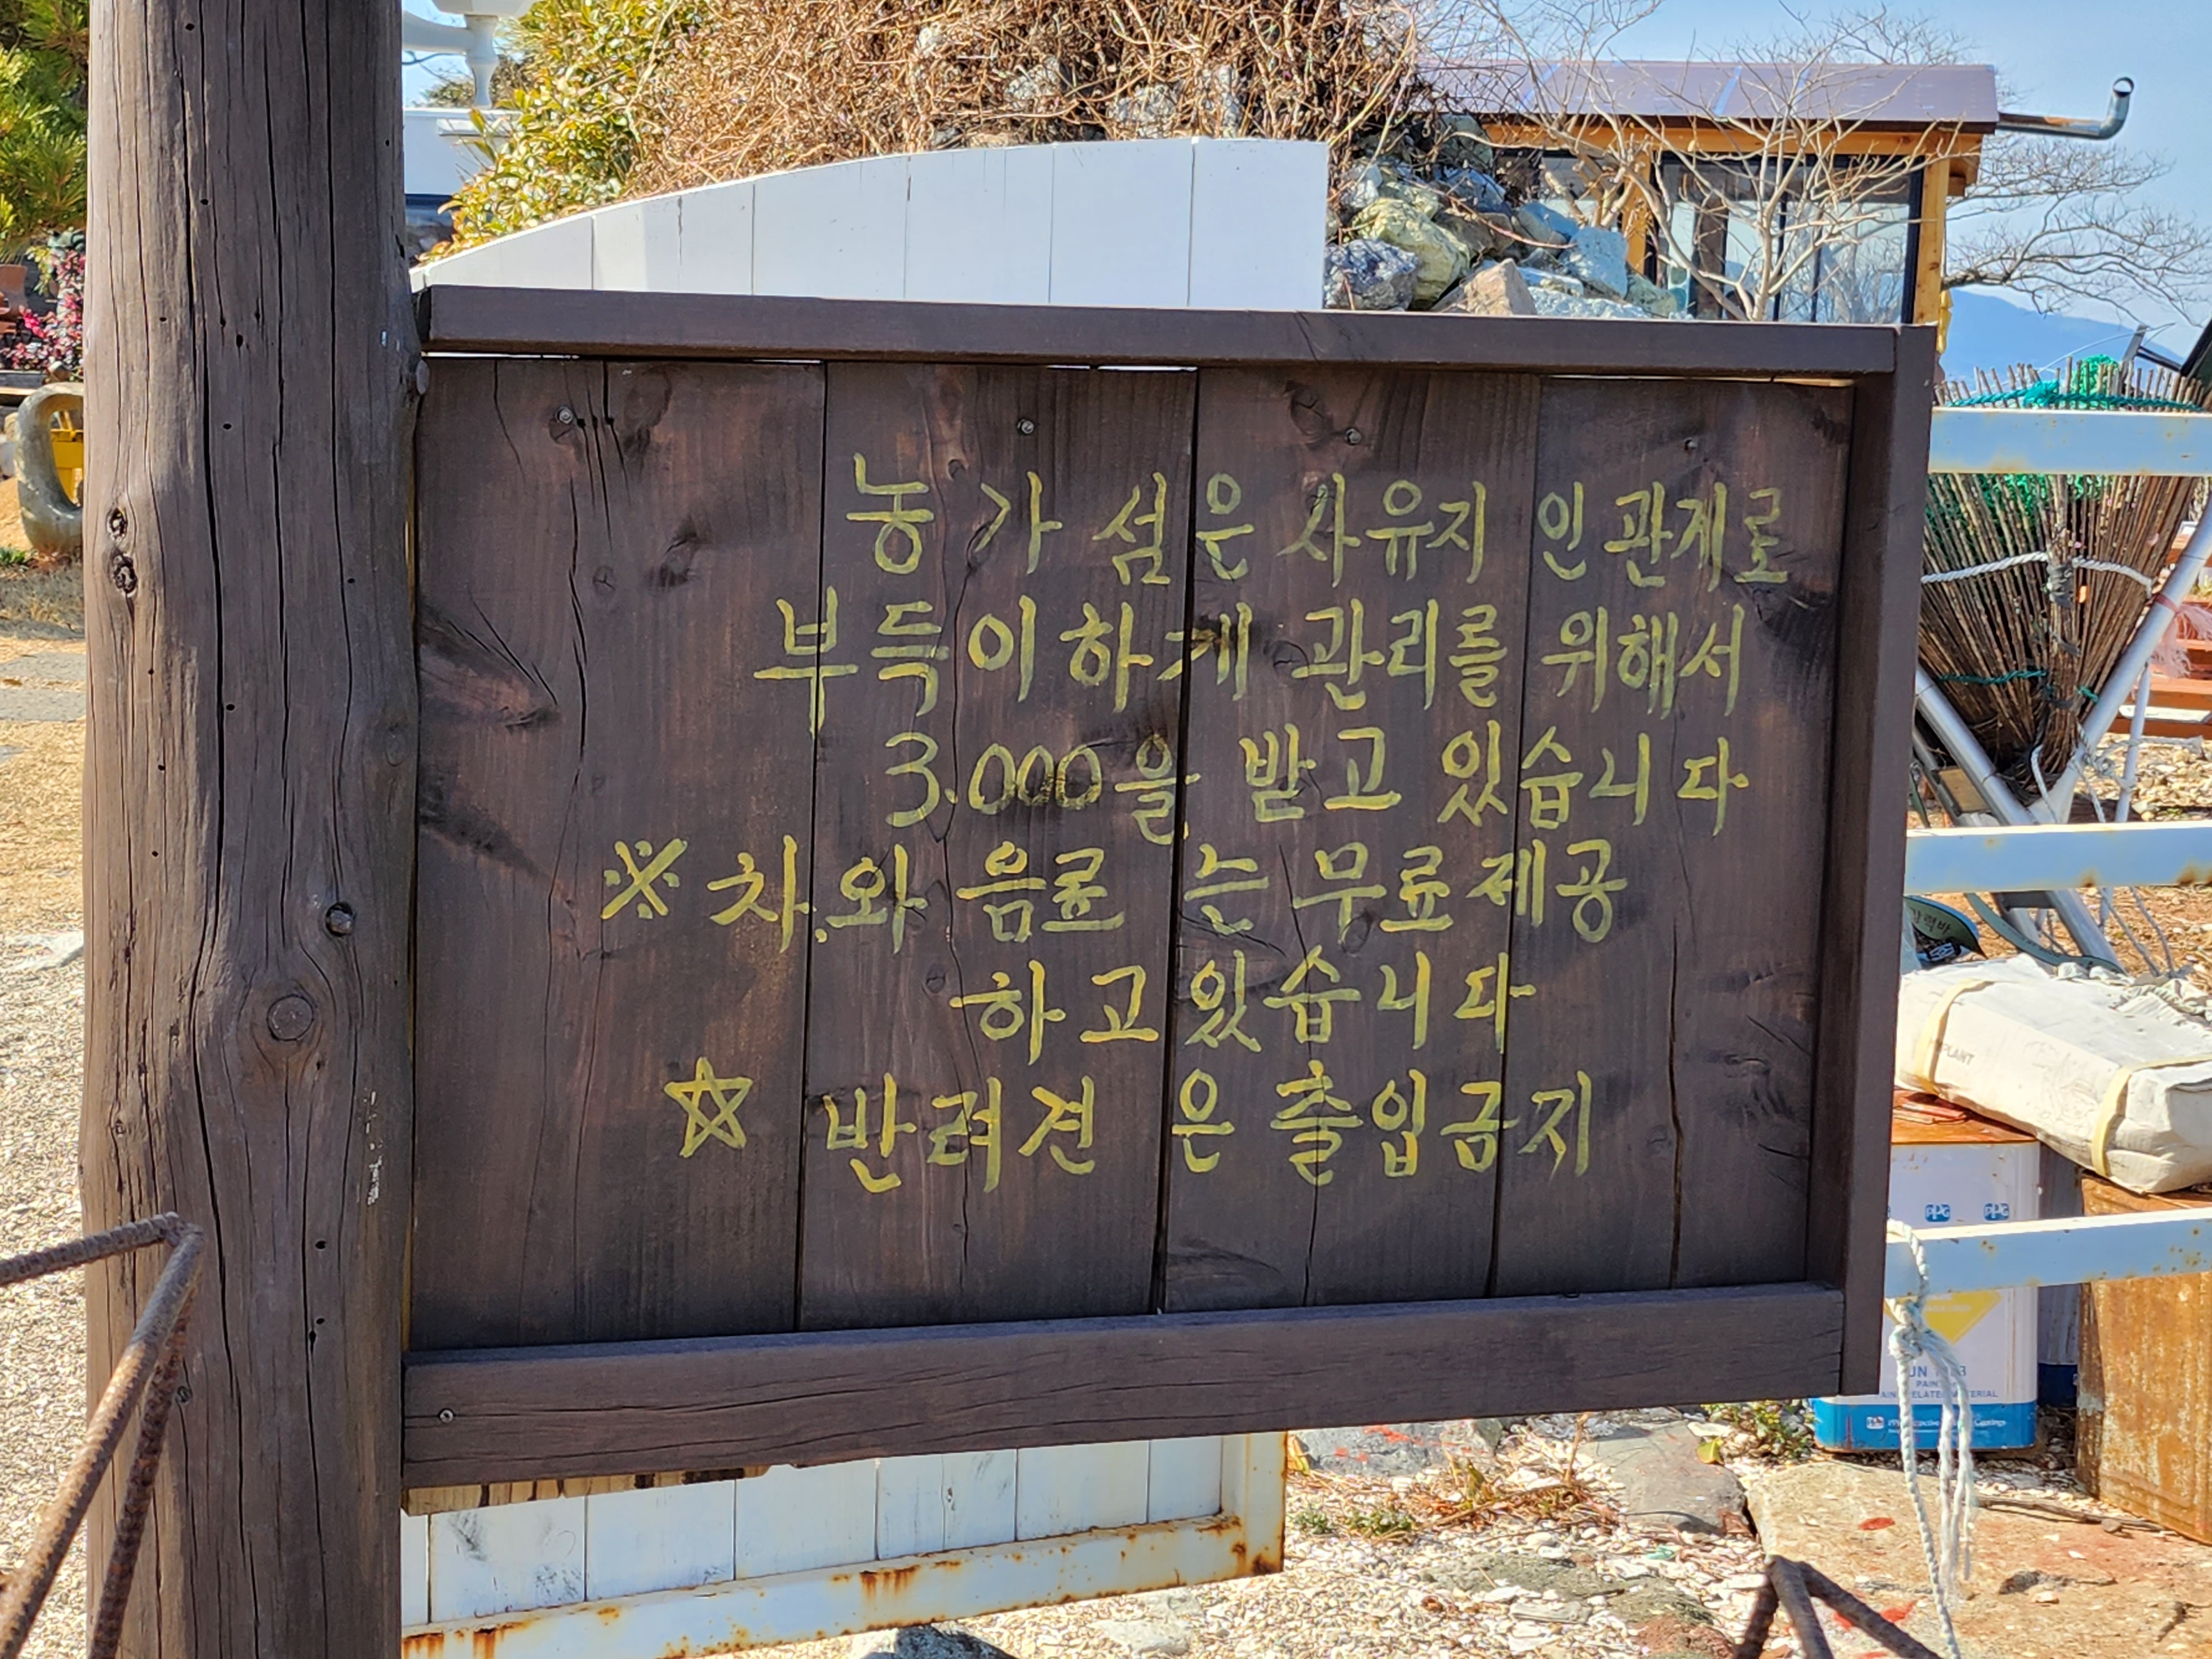 농가섬은 사유지 인관계로
부득이하게 관리를 위해서
3.000을 받고 있습니다
※ 차와 음료는 무료제공
하고있습니다
☆ 반려견은 출입금지
PPG PPG
PAIN